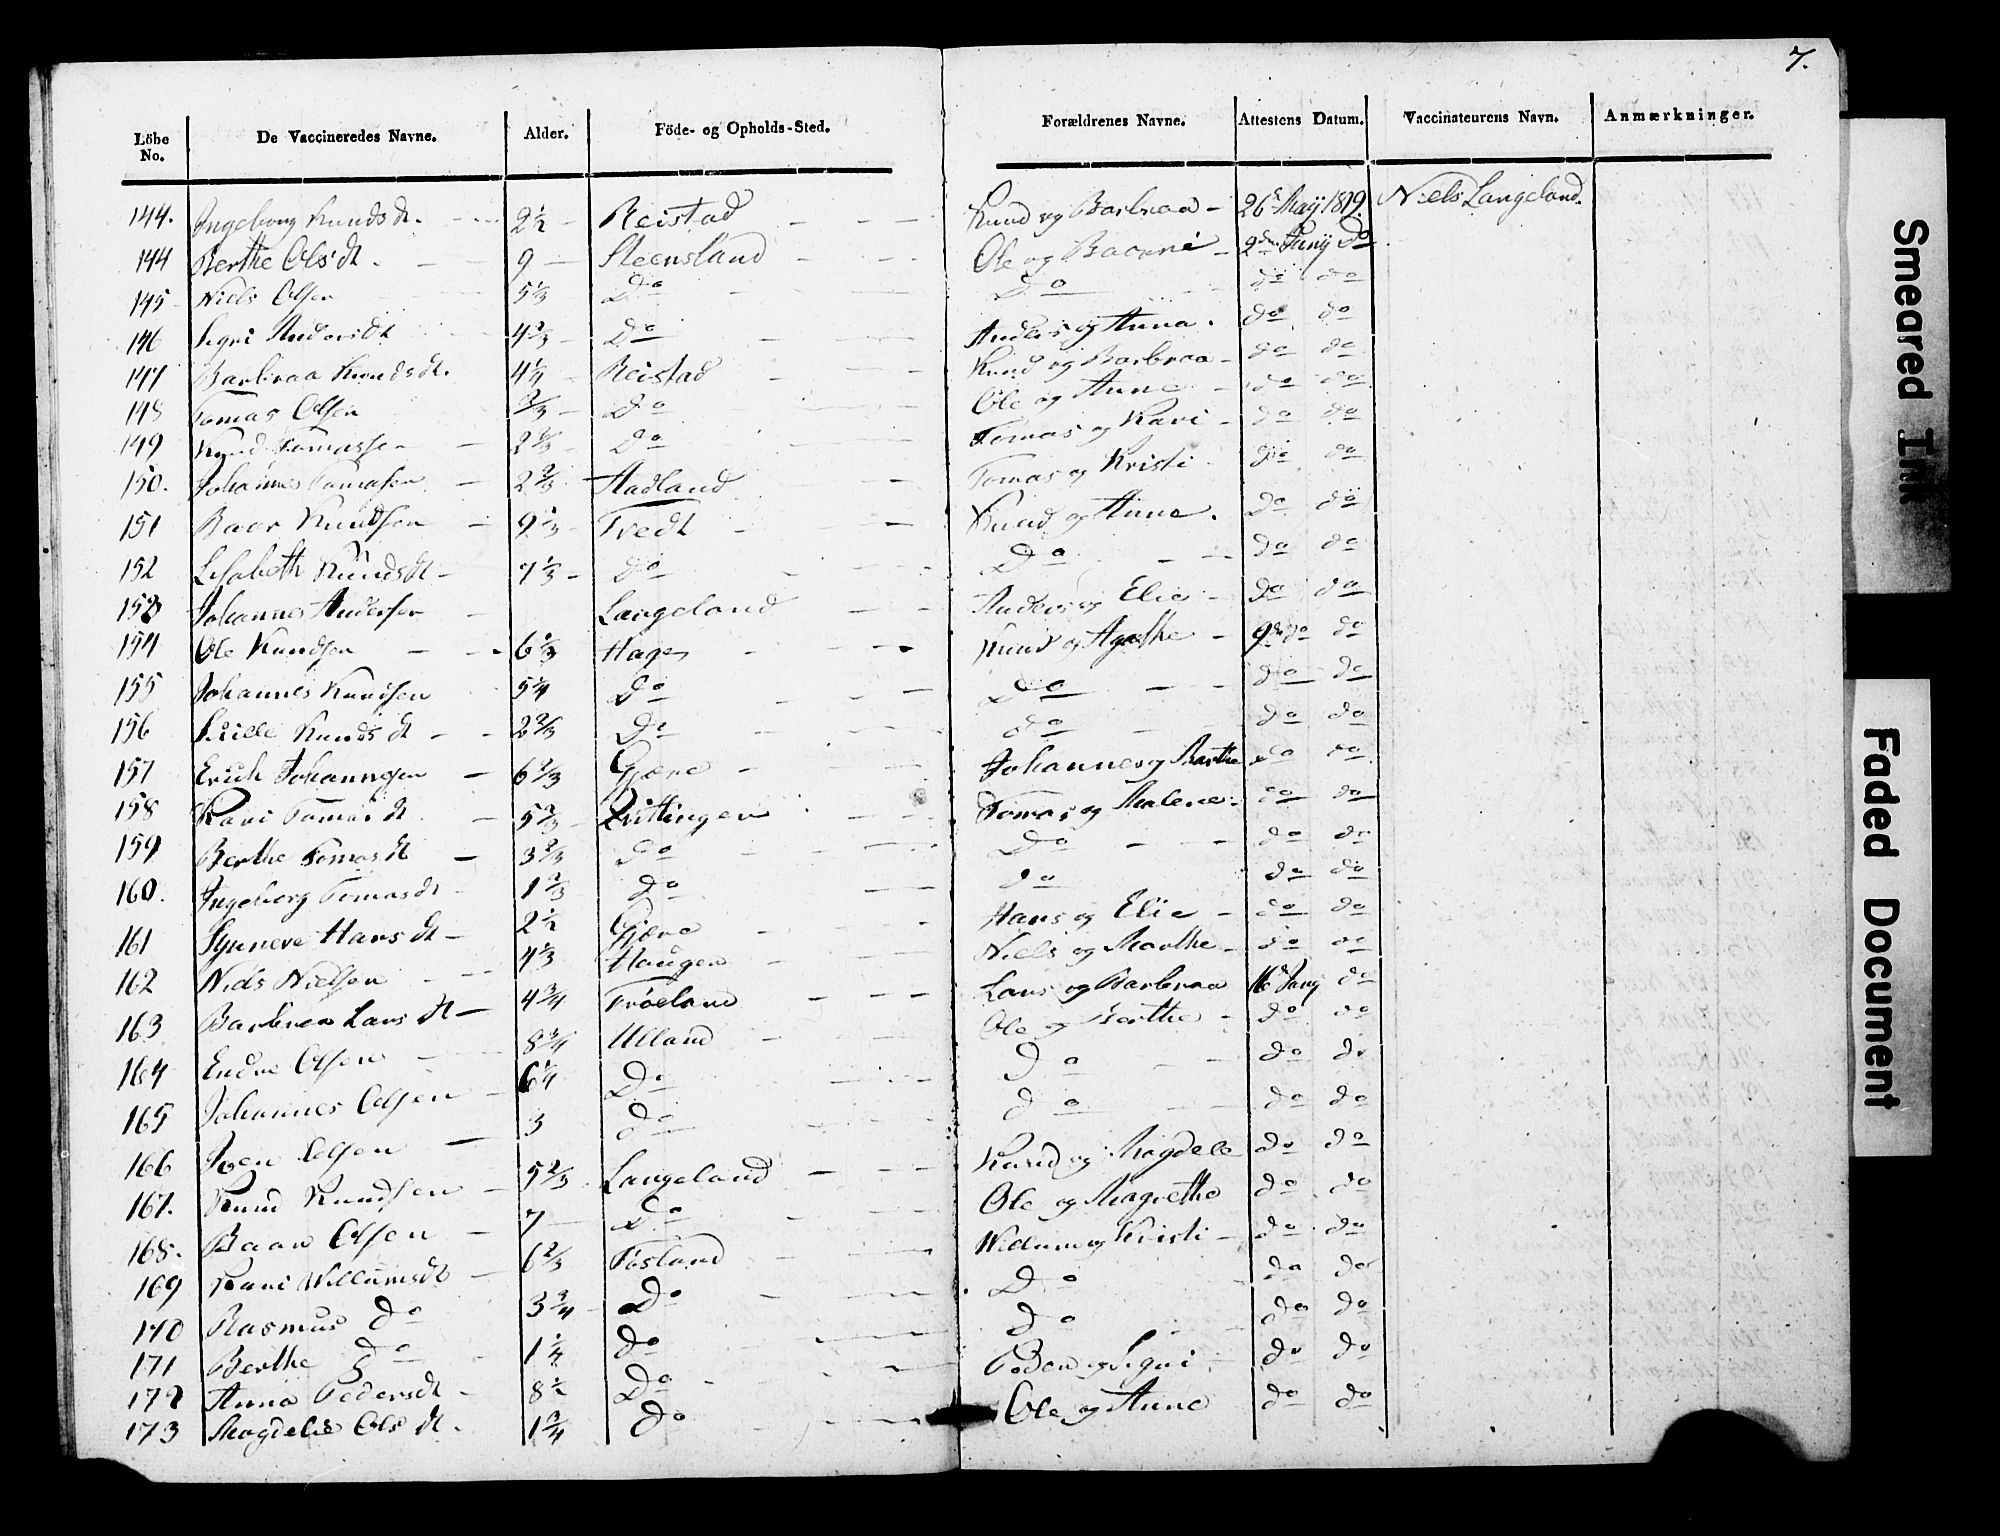 7.
Löbe No. De Vaccineredes Navne. Alder. Föde- og Opholds-Sted. Forældrenes Navne. Attestens Datum. Vaccinateurens Navn. Anmærkninger.
144. Ingeborg Knudsdt. 2 1/2 Reistad Knud og Barbraa 26 Maij 1819. Niels Langeland.
144 Berthe Olsdt. 9 Steensland Ole og 2den Junij Do
145 Niels Olsen 5 1/3 Do Do do do
146 Segri Andersdt 4 2/3 Do Anders og Anna. do do
147 Barbraa Knudsdt. 4 1/4 Reistad Knud og Barbraa do do
148 Tomas Olsen 2/3 Do Ole og Anne do do
149 Knud Tomassen 2 2/3 Do Tomas og Kari do do
150. Johannes Tomasen 2 2/3 Aadland Tomas og Kristi do do
151 Baar Knudsen 9 1/3 Tvedt Knud og Anne. Do do
152 Lisabeth Knudsdt 7 1/3 do Do do do
153 Johannes Andersen Langeland Anders og Elie do do
154 Ole Knudsen 6 1/3 Hage Knud og Agathe 9de do do
155 Johannes Knudsen 5 1/4 Do Do do do
156 Knudsdt 2 2/3 Do do do do
157 Erich Johannesen 6 2/3 Gjære Johannes og Marthe do do
158 Kari Tomasdt 5 2/3 Qvittingen Tomas og Malene do do
159 Berthe Tomasdt 3 2/3 Do Do do do
160. Ingeborg Tomasdt 1 2/3 do do do do
161 Synneve Hansdt 2 1/2 Gjære Hans og Elie do do
162 Niels Nielsen 4 1/3 Haugen Niels og Marthe do do
163 Barbraa Larsdt 4 3/4 Frøeland Lars og Barbraa 16 Junij do
164 Endre Olsen 8 3/4 Ulland Ole og Berthe do do
165 Johannes Olsen 6 1/4 Do Do do do
166 Iven Olsen 3 do do do do
167. Knud Knudsen 5 2/3 Langeland Knud og Magdele do do
168. Baar Olsen 7 Do Ole og Magrethe do do
169 Kari Willumsdt 6 2/3 Fosland Willum og Kristi do do
170 Rasmus Do 3 3/4 Do Do do do
171 Berthe Do 1 1/4 Do Do do do
172 Anna Pedersdt 8 1/2 Do Peder og Segri do do
173 Magdelie Olsdt. 1 3/4 do Ole og Anne do do
Smeared Ink
Faded Document